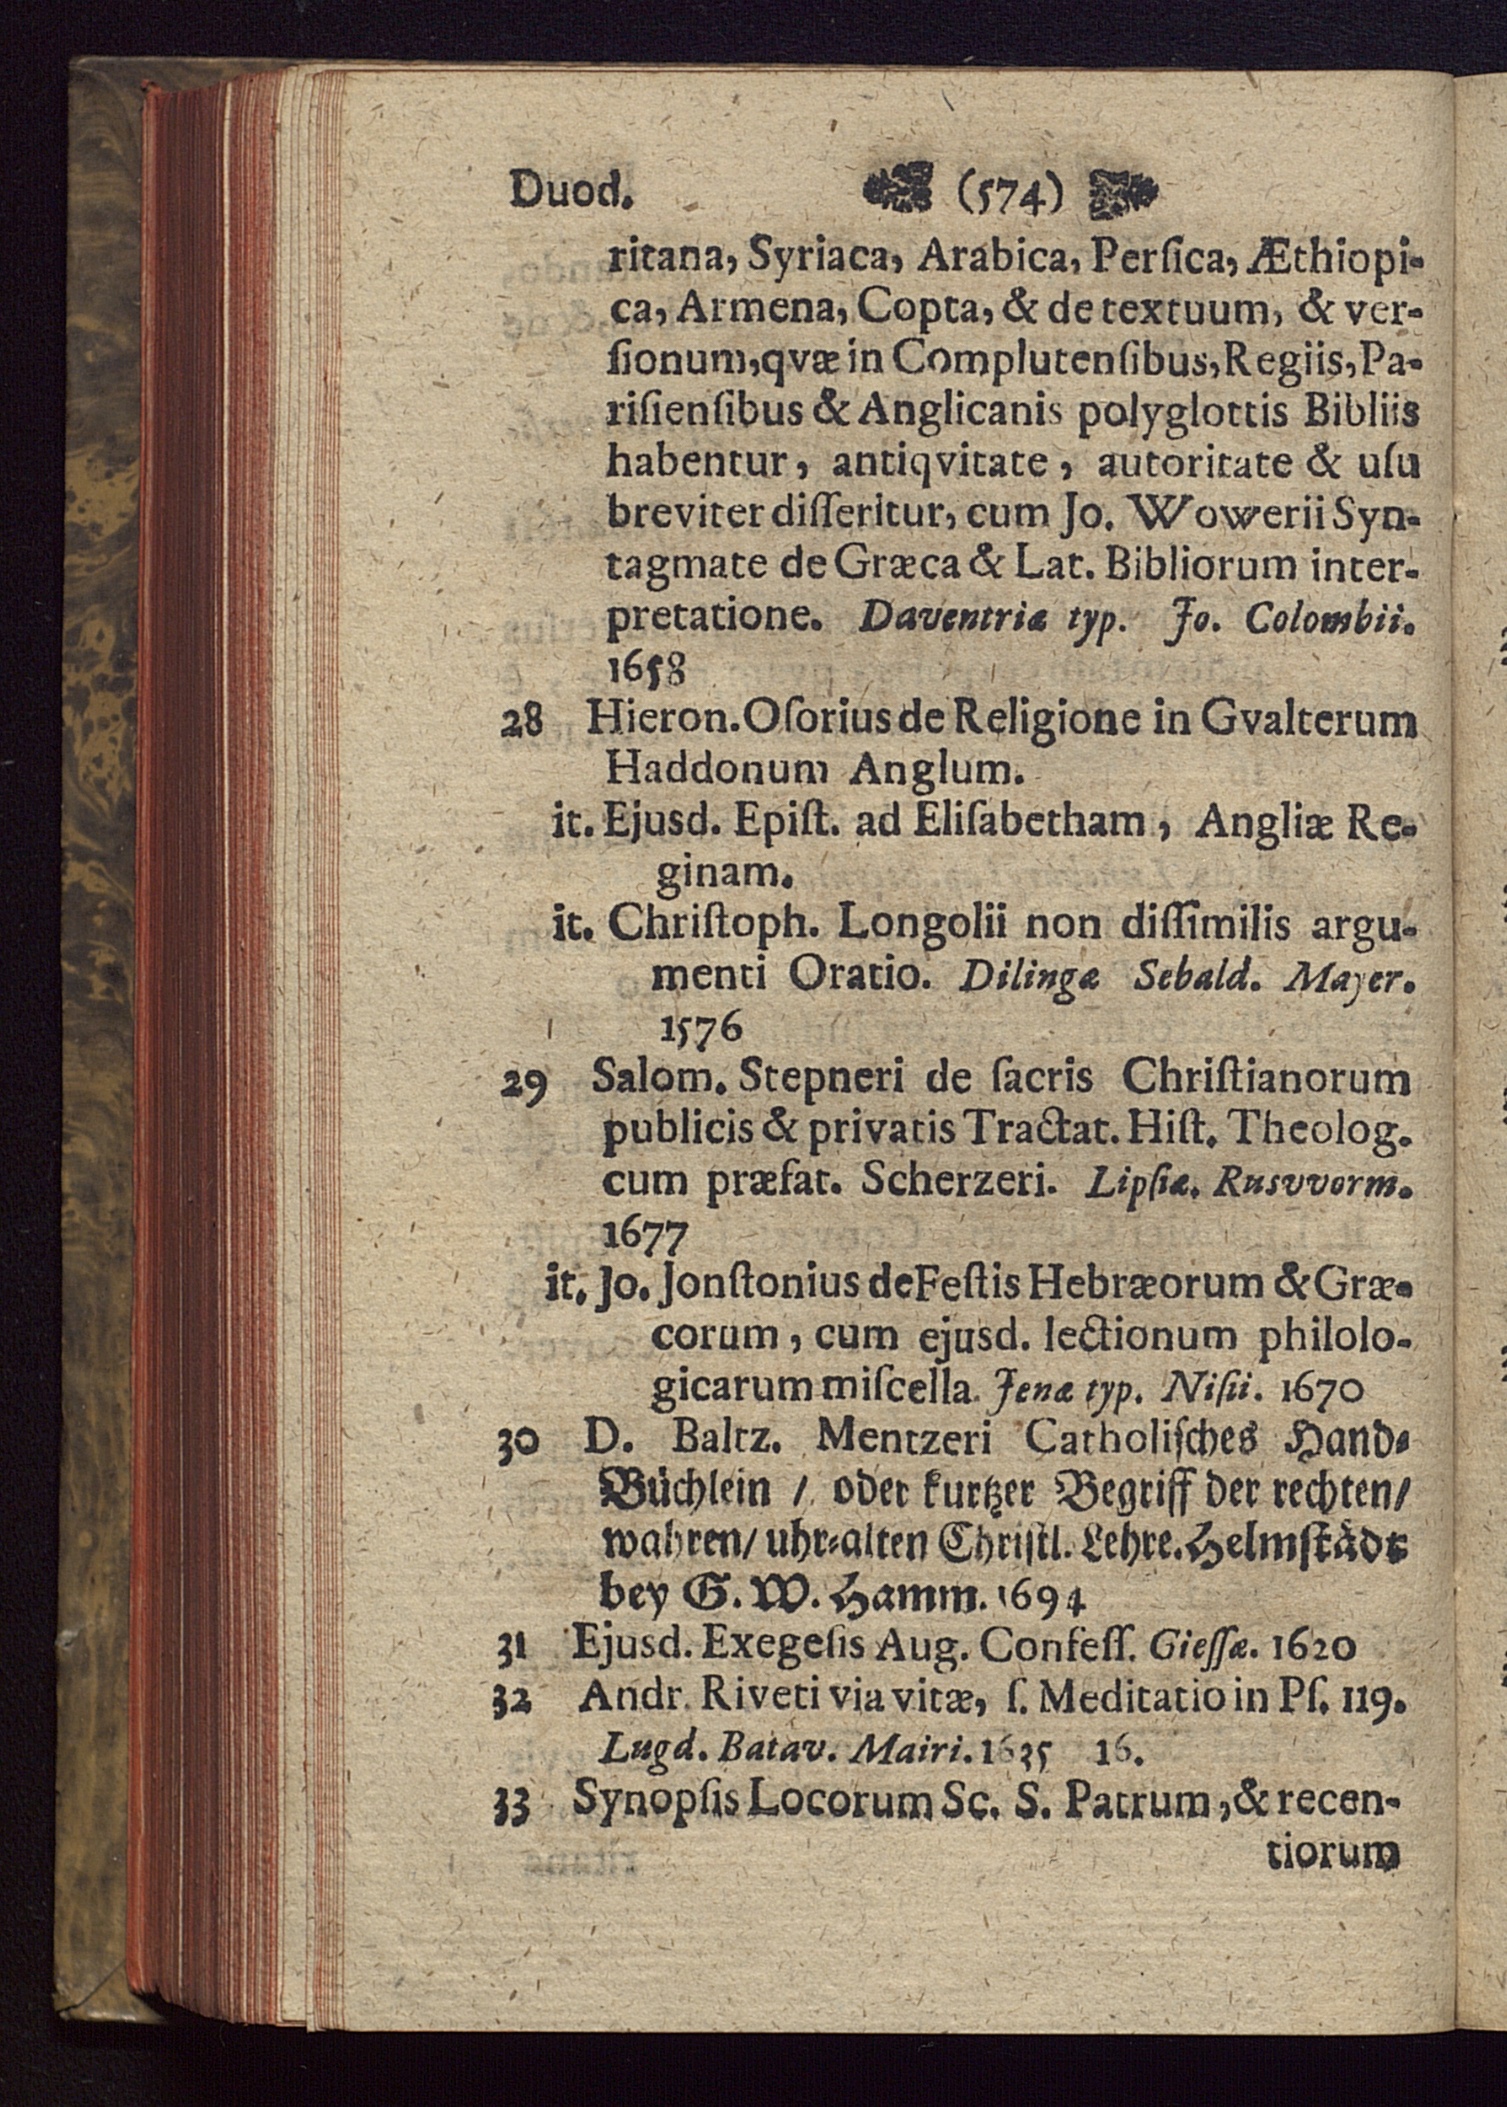 Duod. (574)
ritana, Syriaca, Arabica, Perſica, Æthiopi-
ca, Armena, Copta, & de textuum, & ver-
ſionum, qvæ in Complutenſibus, Regiis, Pa-
riſienſibus & Anglicanis polyglottis Bibliis
habentur, antiqvitate, autoritate & uſu
breviter diſſeritur, cum Jo. Wowerii Syn-
tagmate de Græca & Lat. Bibliorum inter-
pretatione. Daventriæ typ. Jo. Colombii.
1658
28 Hieron. Oſorius de Religione in Gvalterum
Haddonum Anglum.
it. Ejusd. Epiſt. ad Eliſabetham, Angliæ Re-
ginam.
it. Chriſtoph. Longolii non diſſimilis argu-
menti Oratio. Dilingæ Sebald. Mayer.
1576
29 Salom. Stepneri de ſacris Chriſtianorum
publicis & privatis Tractat. Hiſt. Theolog.
cum præfat. Scherzeri. Lipſiæ. Rusvvorm.
1677
it. Jo. Jonſtonius de Feſtis Hebræorum & Græ-
corum, cum ejusd. lectionum philolo-
gicarum miſcella. Jenæ typ. Niſii. 1670
30 D. Baltz. Mentzeri Catholiſches Hand-
Büchlein / oder kurtzer Begriff der rechten/
wahren/ uhr-alten Chriſtl. Lehre. Helmſtådt
bey G. W. Hamm. 1694
31 Ejusd. Exegeſis Aug. Confeſſ. Gieſſæ. 1620
32 Andr. Riveti via vitæ, ſ. Meditatio in Pſ. 119.
Lugd. Batav. Mairi. 1635 16.
33 Synopſis Locorum Sc. S. Patrum, & recen-
tiorum